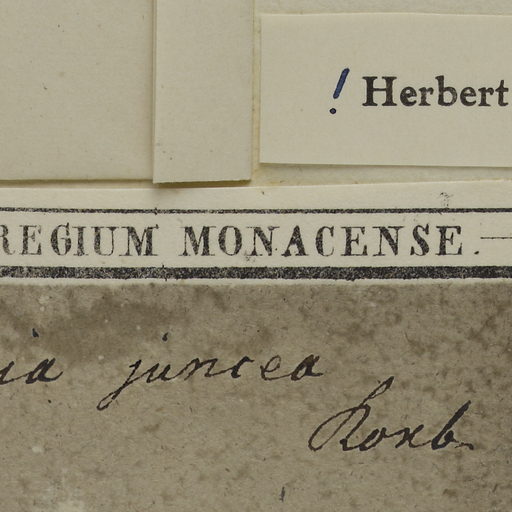 ! Herbert
REGIUM MONACENSE.
ia juncea
Roxb.